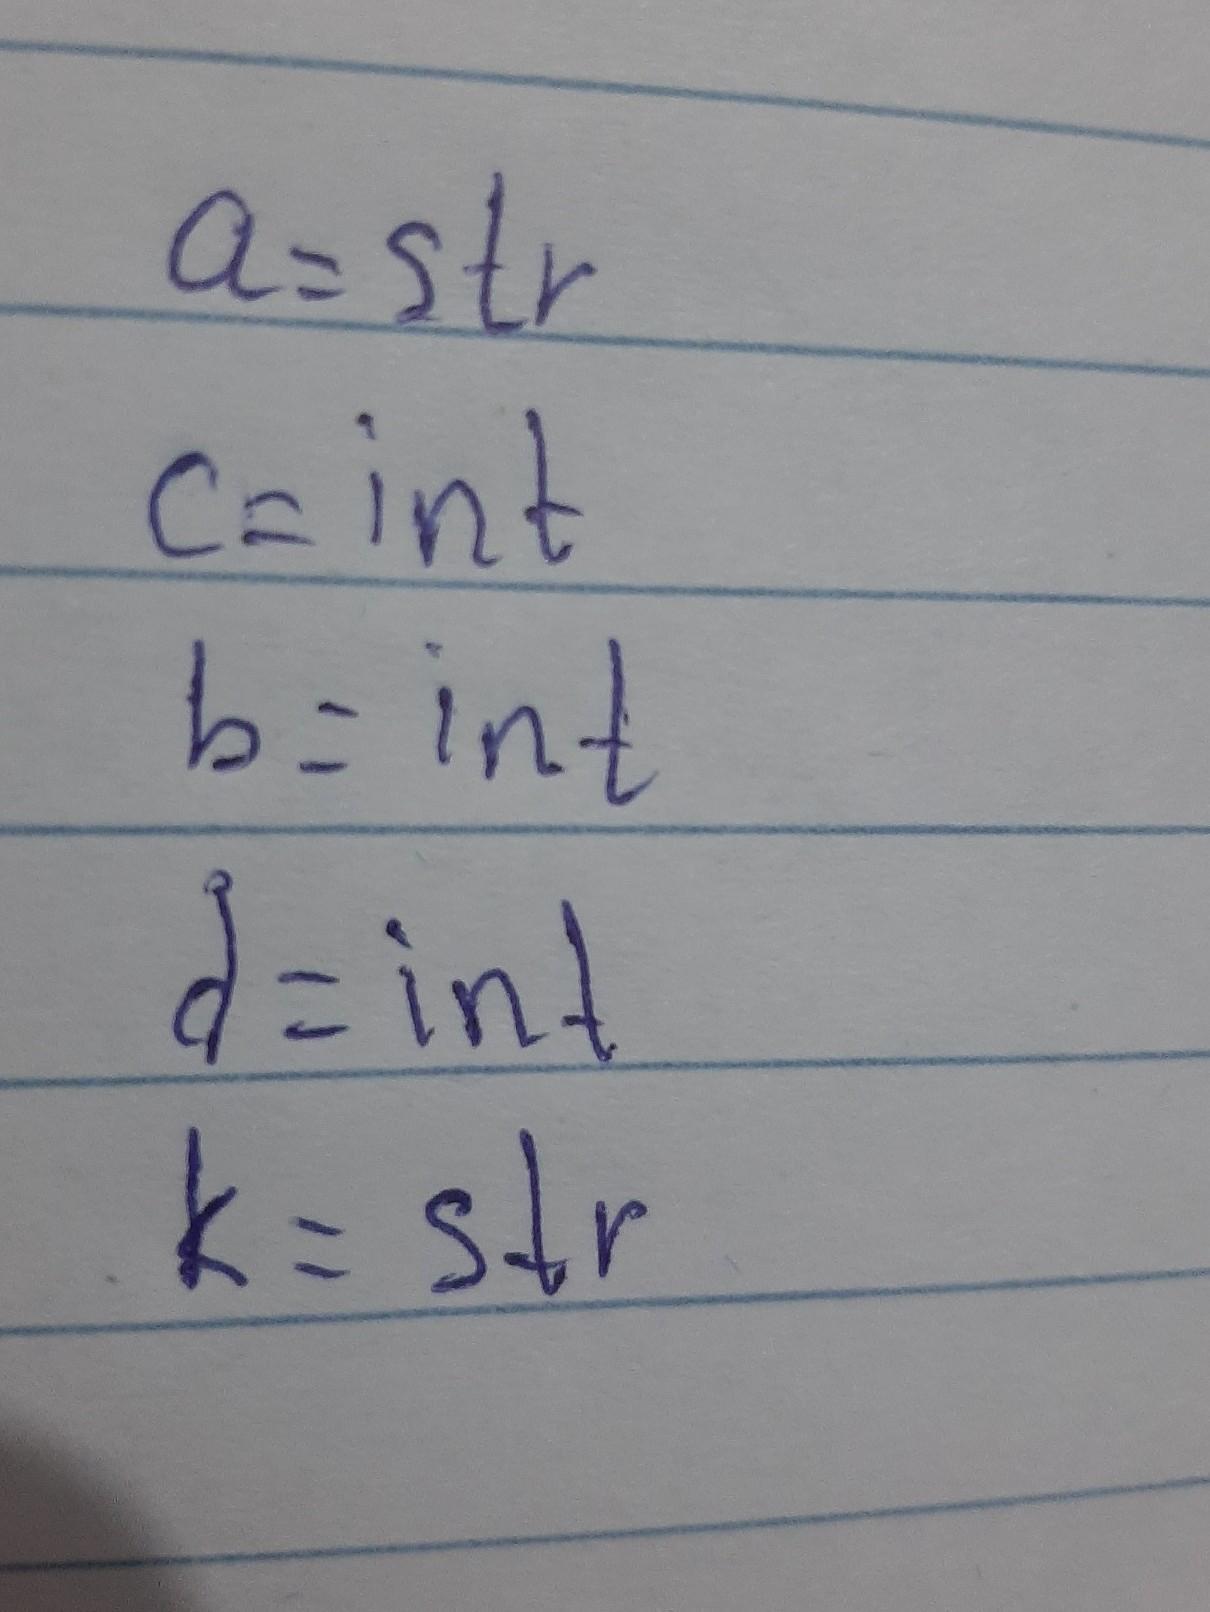 a=str
c=int
b=int
d=int
k=str